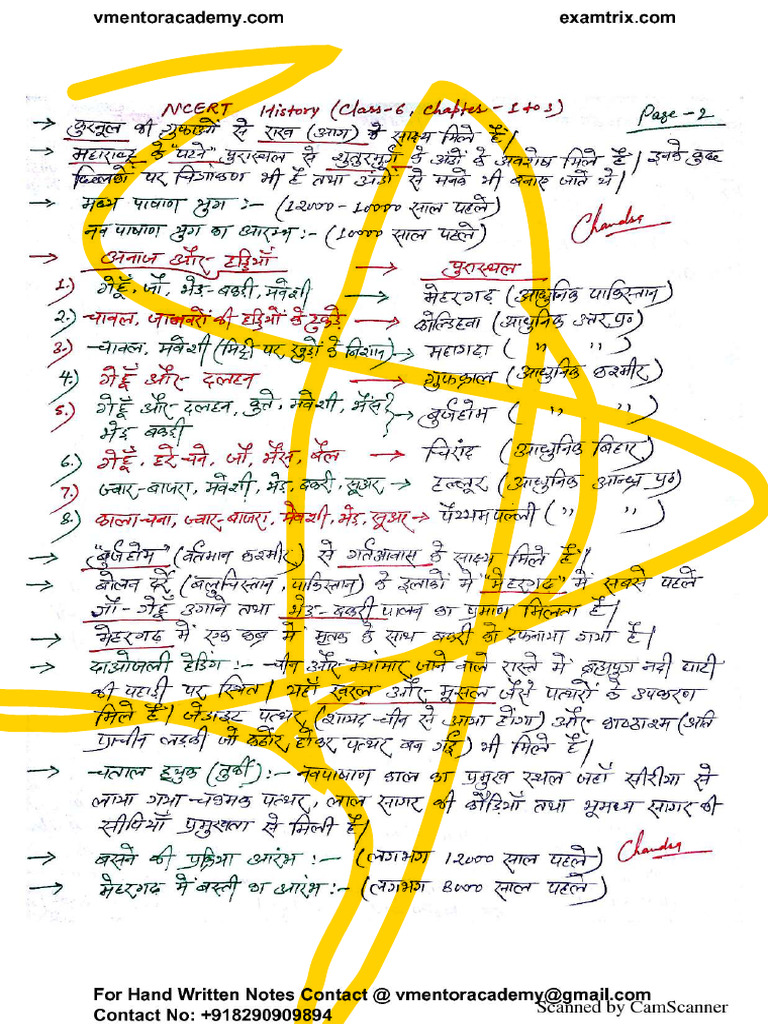 vmentoracademy.com examtrix.com
NCERT History (Class-6, Chapter-1 to 3) Page-2
→ कुरनूल की गुफाओं से राख (आग) के साक्ष्य मिले हैं|
→ महाराष्ट्र के "पटने" पुरास्थल से शुतुरमुर्ग के अंडों के अवशेष मिले हैं| इनके कुछ
छिलकों पर चित्रांकण भी हैं तथा अंडों से मनके भी बनाए जाते थे|
→ मध्य पाषाण युग :- (12000-10000 साल पहले)
नव पाषाण युग का आरम्भ :- (10000 साल पहले) Chandra
→ अनाज और हड्डियाँ → पुरास्थल
1.) गेहूँ, जौ, भेड़-बकरी, मवेशी → मेहरगढ़ (आधुनिक पाकिस्तान)
2.) चावल, जानवरों की हड्डियों के टुकड़े → कोल्डिहवा (आधुनिक उत्तर प्र०)
3.) चावल, मवेशी (मिट्टी पर खुरों के निशान) → महागढ़ा ( " " )
4.) गेहूँ और दलहन → गुफक्राल (आधुनिक कश्मीर)
5.) गेहूँ और दलहन, कुत्ते, मवेशी, भैंस, → बुर्जहोम ( " " )
भेड़ बकरी
6.) गेहूँ, हरे चने, जौ, भैंस, बैल → चिरांद (आधुनिक बिहार)
7.) ज्वार-बाजरा, मवेशी, भेड़, बकरी, सूअर, → हल्लूर (आधुनिक आन्ध्र प्र०)
8.) काला चना, ज्वार-बाजरा, मवेशी, भेड़, सूअर → पैय्यमपल्ली ( " " )
→ "बुर्जहोम" (वर्तमान कश्मीर) से गर्तआवास के साक्ष्य मिले हैं|
→ बोलन दर्रे (बलुचिस्तान, पाकिस्तान) के इलाकों में "मेहरगढ़" में सबसे पहले
जौ-गेहूँ उगाने तथा भेड़-बकरी पालन का प्रमाण मिलता है|
→ मेहरगढ़ में एक कब्र में मृतक के साथ बकरी को दफनाया गया है|
→ दाओजली हेडिंग :- चीन और म्यांमार जाने वाले रास्ते में ब्रह्मपुत्र नदी घाटी
की पहाड़ी पर स्थित| यहाँ खरल और मूसल जैसे पत्थरों के उपकरण
मिले हैं| जेडाइट पत्थर (शायद चीन से आया होगा) और काष्ठाश्म (अति
प्राचीन लकड़ी जो कठोर होकर पत्थर बन गई) भी मिले हैं|
→ चताल हुयुक (तुर्की) :- नवपाषाण काल का प्रमुख स्थल जहाँ सीरीया से
लाया गया चकमक पत्थर, लाल सागर की कौड़ियाँ तथा भूमध्य सागर की
सीपियाँ प्रमुखता से मिली हैं|
→ बसने की प्रक्रिया आरंभ :- (लगभग 12000 साल पहले) Chandra
→ मेहरगढ़ में बस्ती का आरंभ :- (लगभग 8000 साल पहले)
For Hand Written Notes Contact @ vmentoracademy@gmail.com
Scanned by CamScanner
Contact No: +918290909894